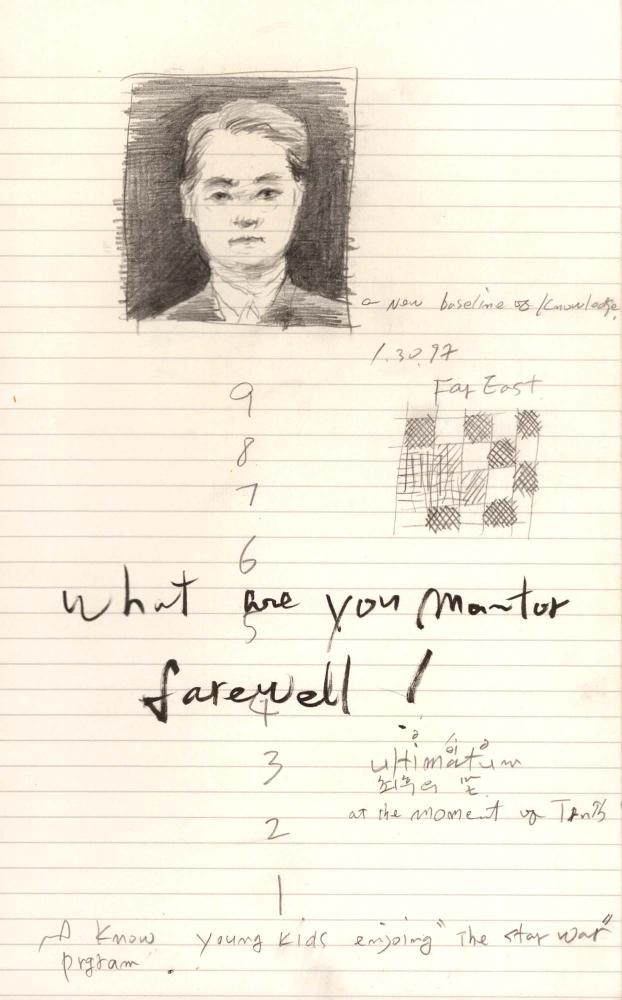 a new baseline of knowledge.
1.30.97
Far East
9
8
7
6
What are you Mantor
5
farewell !
4
3
ultimatum
2
at the moment of
1
I Know young kids enjoing "The star war"
prgram .